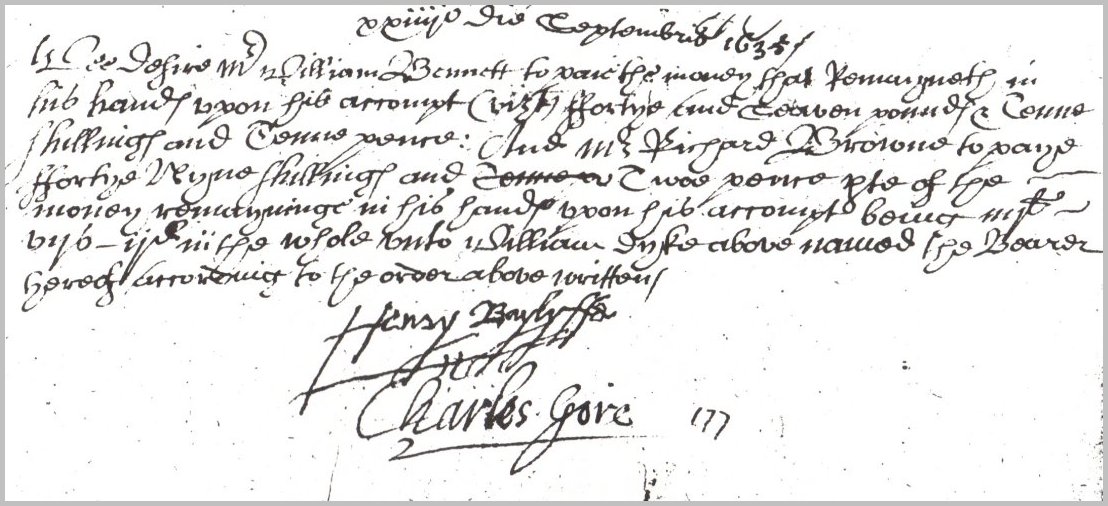 xxiiijo die Septembris 1635
Wee desire Mr William Bennett to paie the money that Remayneth in
his handes vpon his accompt (vizt) ffortye and Seaven poundes & Tenne
shillings and Tenne pence: And Mr Richard Browne to paye
ffortye Nyne shillings and Twoe pence pte of the
money remayninge in his handes vpon his accompt being
in the whole vnto William Dyke above named the Bearer
hereof according to the order above written
Henry Baylyffe
Charles Gore 177